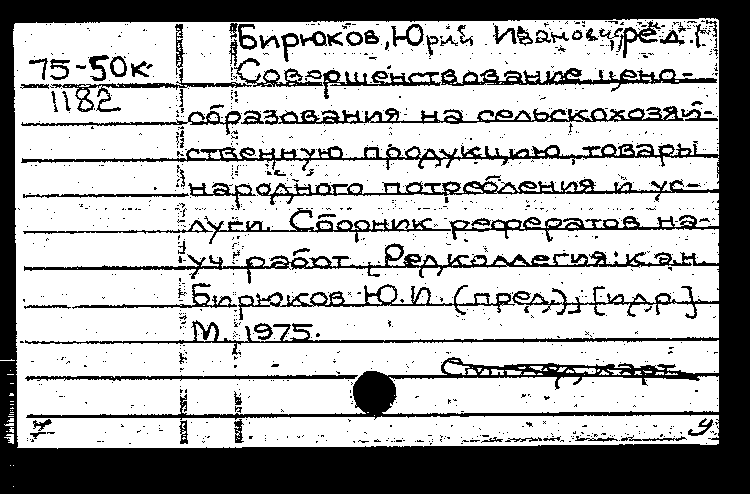 Бирюков, Юрий Иванович, ред.
75-50к
Совершенствование цено-
1182
образования на сельскохозяй-
ственную продукцию, товары
народного потребления и ус-
луги. Сборник рефератов на-
уч работ. [Редколлегия: к.э.н.
Бирюков Ю.И. (пред.), [и др.]
М. 1975.
См. след. карт.
7